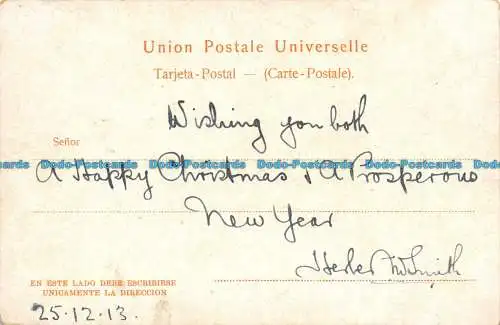 Union Postale Universelle
Tarjeta-Postal — (Carte-Postale).
Wishing you both
Señor
Dodo-Postcards Dodo-Postcards Dodo-Postcards Dodo-Postcards Dodo-Postcards
A Happy Christmas & A Prosperous
New Year
Smith
EN ESTE LADO DEBE ESCRIBIRSE
UNICAMENTE LA DIRECCION
25.12.13.